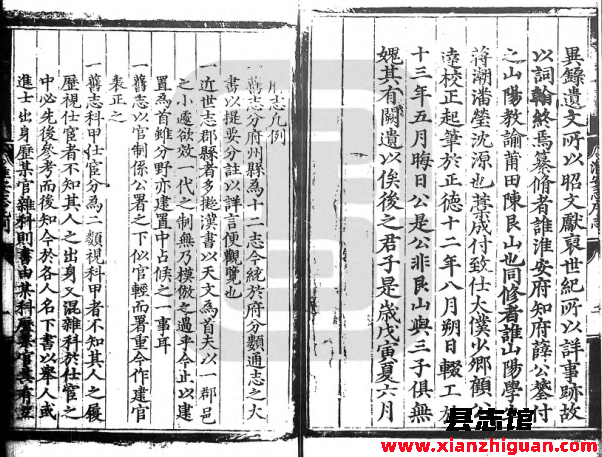 異錄遺文所以昭文獻裒世紀所以詳事跡故
以詞翰終焉纂脩者誰淮安府知府薛公鏊付
之山陽教諭莆田陳艮山也同修者誰山陽學
蔣潮潘榮沈源也藁成付致仕太僕少卿顧公
遠校正起筆於正德十二年八月朔日輟工
十三年五月晦日公是公非艮山與三子俱無
媿其有闕遺以俟後之君子是歲戊寅夏六月
府志凡例
一舊志分府州縣為十二志今統於府分類通志之大
書以提要分註以詳言便觀覽也
一近世志郡縣者多擬漢書以天文為首夫以一郡邑
之小處欲效一代之制無乃模倣之過乎今止以建
置為首雖分野亦建置中占候之一事耳
一舊志以官制係公署之下似官輕而署重今作建官
表正之
一舊志科甲仕宦分為二類視科甲者不知其人之履
歷視仕宦者不知其人之出身又混雜科於仕宦之
中必先後參考而後知今於各人名下書以舉人或
進士出身歷某官雜科則書由某科歷某官其有
县志馆
www.xianzhiguan.com